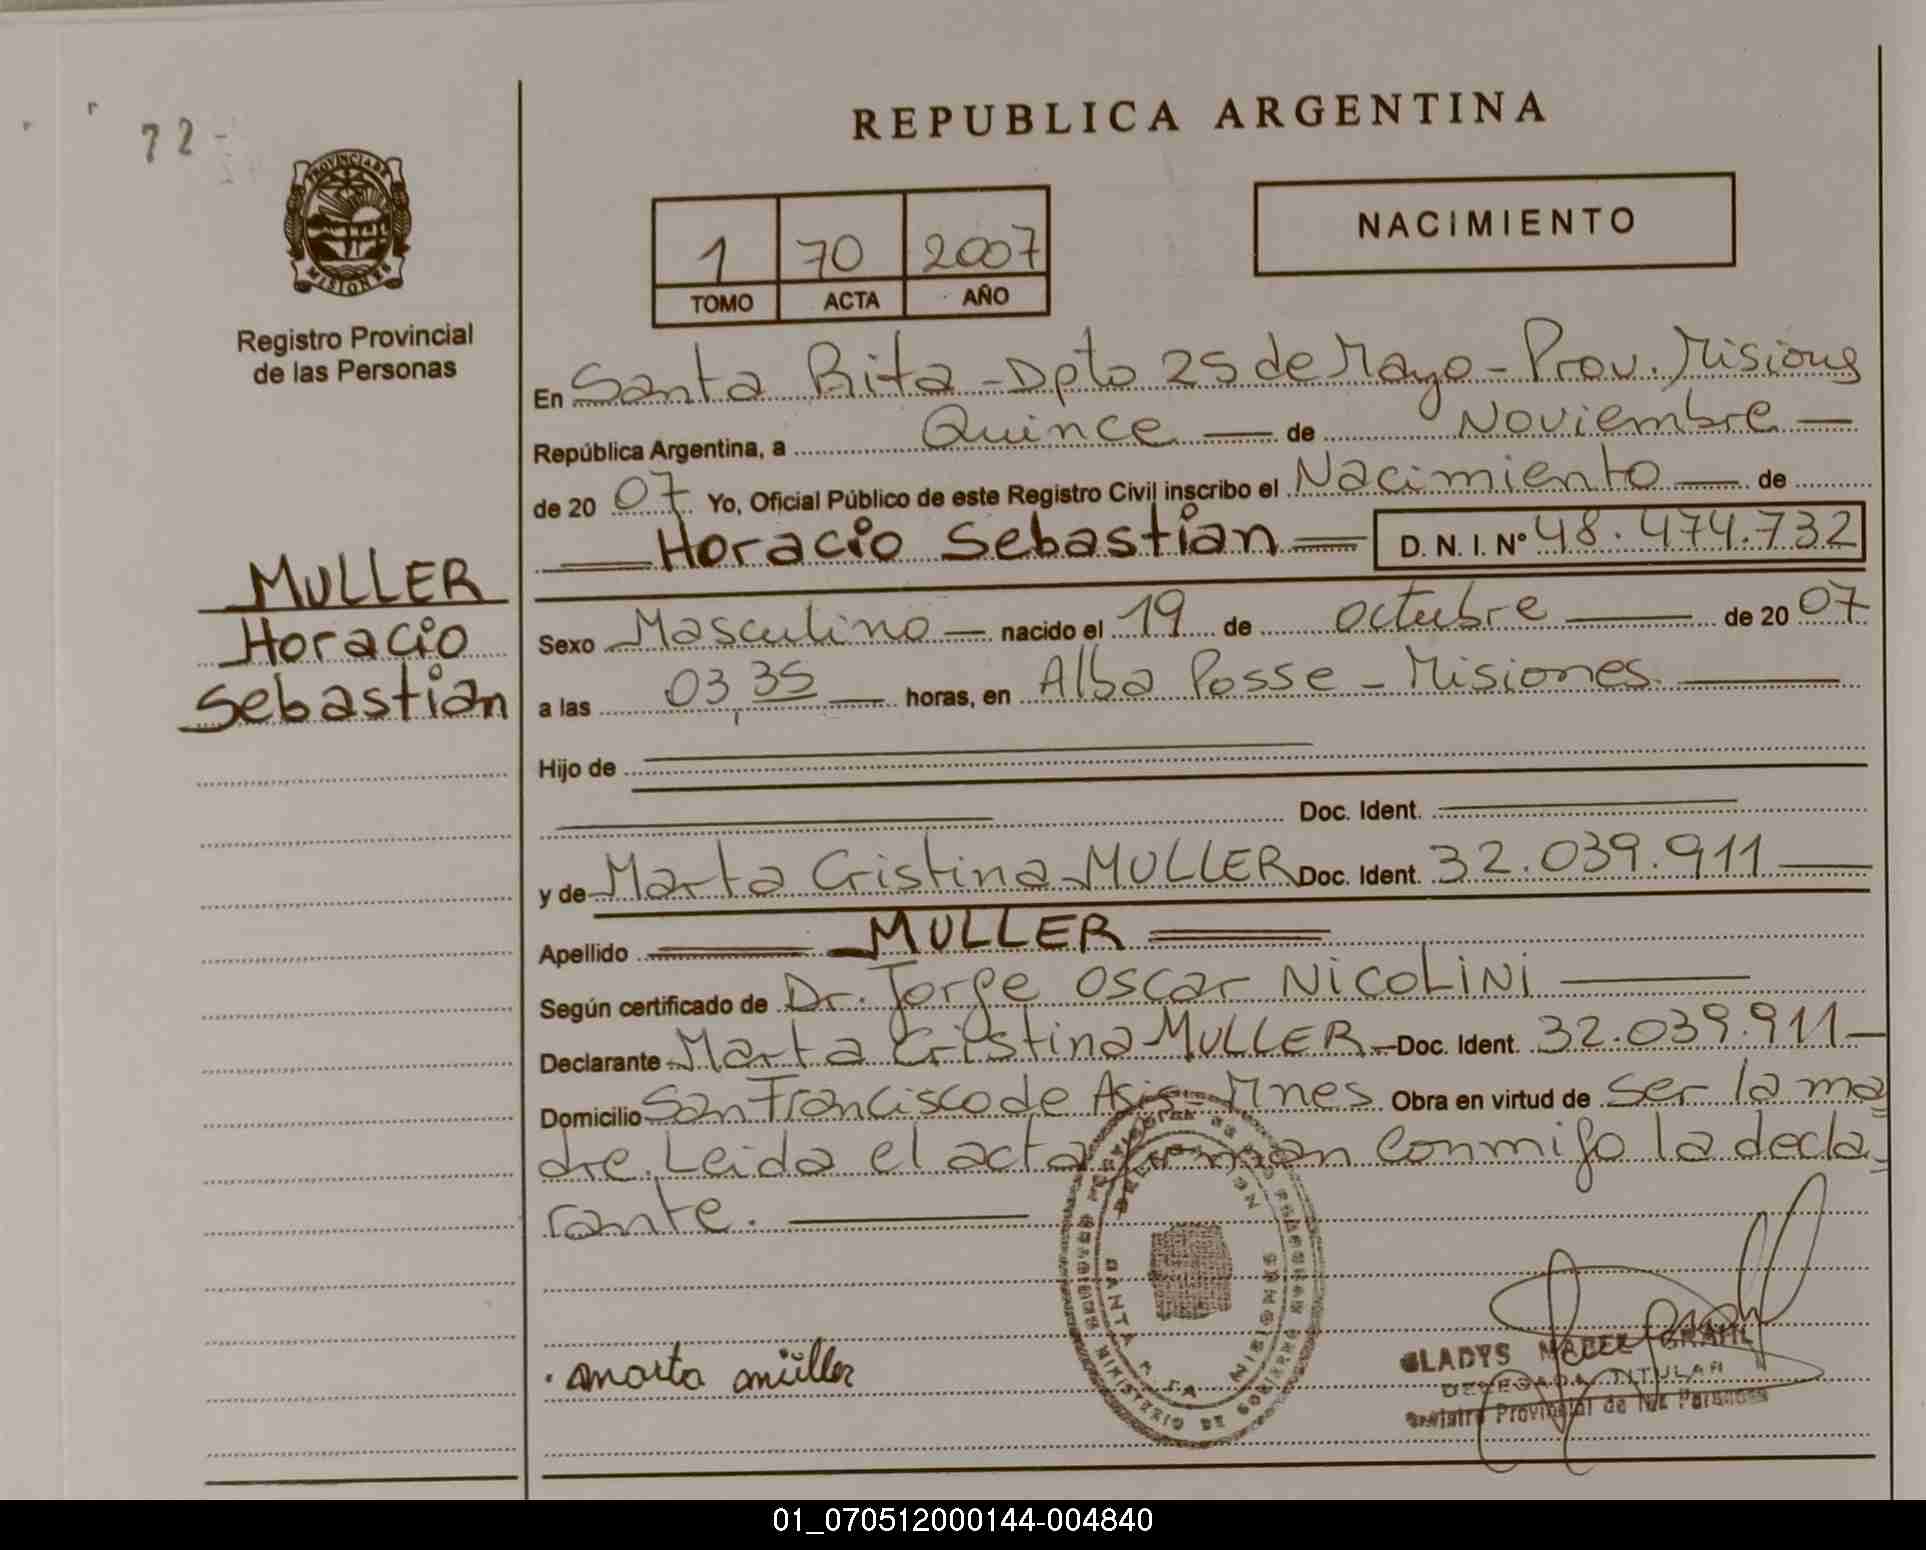 72-
PROVINCIA DE
MISIONES
Registro Provincial
de las Personas
MULLER
Horacio
Sebastian
REPUBLICA ARGENTINA
1 70 2007
TOMO ACTA AÑO
NACIMIENTO
En Santa Rita - Dpto 25 de Mayo - Prov. Misiones
República Argentina, a Quince — de Noviembre —
de 20 07 Yo, Oficial Público de este Registro Civil inscribo el Nacimiento — de
Horacio Sebastian = D. N. I. N° 48.474.732
Sexo Masculino — nacido el 19 de octubre — de 20 07
a las 03,35 — horas, en Alba Posse - Misiones. —
Hijo de
Doc. Ident.
y de Marta Cristina MULLER Doc. Ident. 32.039.911 —
Apellido MULLER
Según certificado de Dr. Jorge Oscar NICOLINI —
Declarante Marta Cristina MULLER - Doc. Ident. 32.039.911 —
Domicilio San Francisco de Asis - Mnes Obra en virtud de ser la ma
dre. Leida el acta firman conmigo la decla
rante. —
SANTA RITA MISIONES
MINISTERIO DE GOBIERNO
Marta müller
GLADYS MABEL GRAHL
DELEGADA TITULAR
Registro Provincial de las Personas
01_070512000144-004840